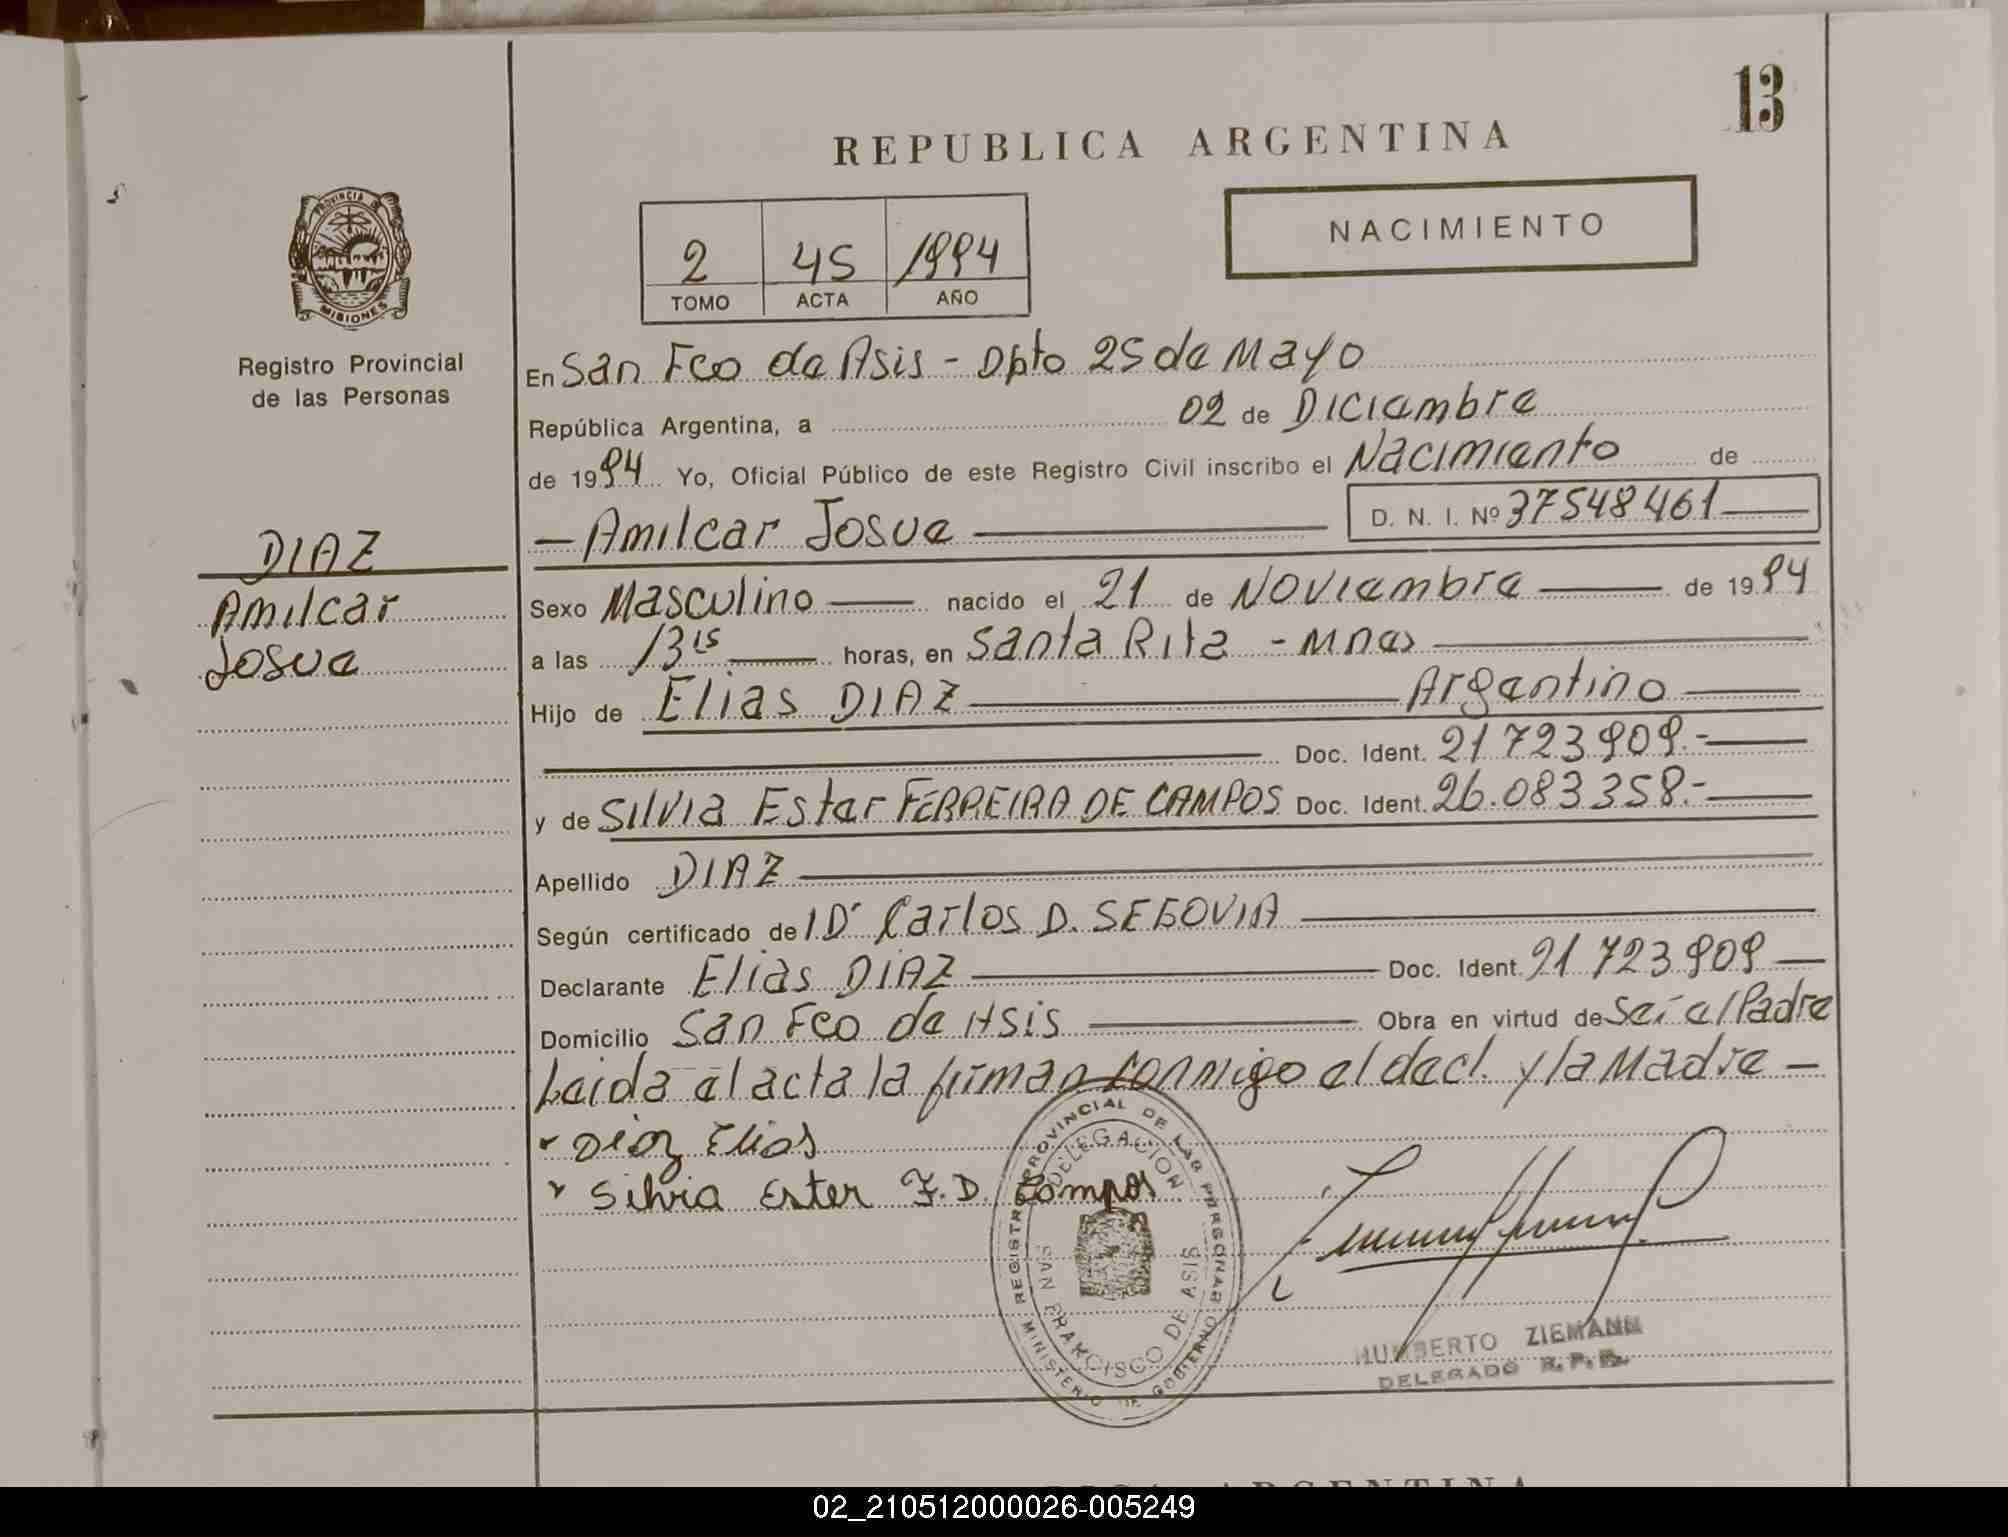 13
REPUBLICA ARGENTINA
PROVINCIA DE
MISIONES
Registro Provincial
de las Personas
2 45 1994
TOMO ACTA AÑO
NACIMIENTO
En San Fco de Asis - Dpto 25 de Mayo
República Argentina, a 02 de Diciembre
de 1994 Yo, Oficial Público de este Registro Civil inscribo el Nacimiento de
DIAZ
Amilcar
Josue
— Amilcar Josue — D. N. I. Nº 37548461 —
Sexo Masculino — nacido el 21 de Noviembre — de 1994
a las 13 15 — horas, en Santa Rita - Mnes —
Hijo de Elias DIAZ — Argentino —
Doc. Ident. 21 723 909.- —
y de Silvia Ester FERREIRA DE CAMPOS Doc. Ident. 26.083 358.- —
Apellido DIAZ —
Según certificado de l Dr Carlos D. SEGOVIA —
Declarante Elias DIAZ — Doc. Ident. 21 723 909 —
Domicilio San Fco de Asis — Obra en virtud de Ser el Padre
Leida el acta la firman conmigo el decl. y la Madre —
Diaz Elias
Silvia Ester F. D. Campos
REGISTRO PROVINCIAL DE LAS PERSONAS
DELEGACION
SAN FRANCISCO DE ASIS
MINISTERIO DE GOBIERNO
HUMBERTO ZIEMANN
DELEGADO R. P. P.
ARGENTINA
02_210512000026-005249